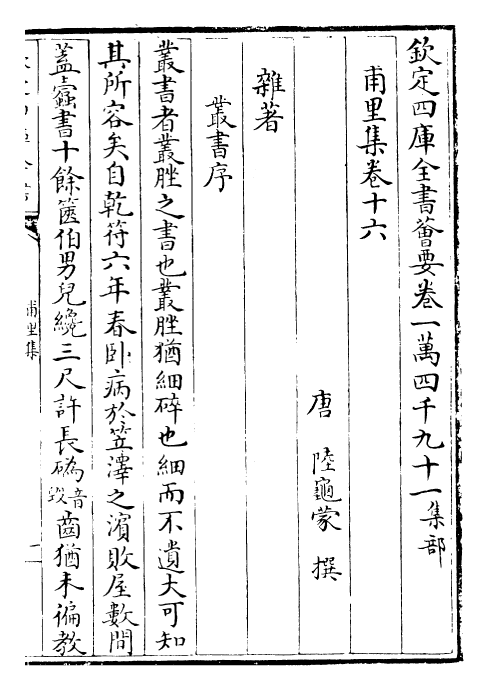 欽定四庫全書薈要卷一萬四千九十一集部
甫里集卷十六
唐 陸龜蒙 撰
雜著
叢書序
叢書者叢脞之書也叢脞猶細碎也細而不遺大可知
其所容矣自乾符六年春卧病於笠澤之濵敗屋數間
葢蠧書十餘篋伯男兒纔三尺許長䃣音毁齒猶未徧教
甫里集